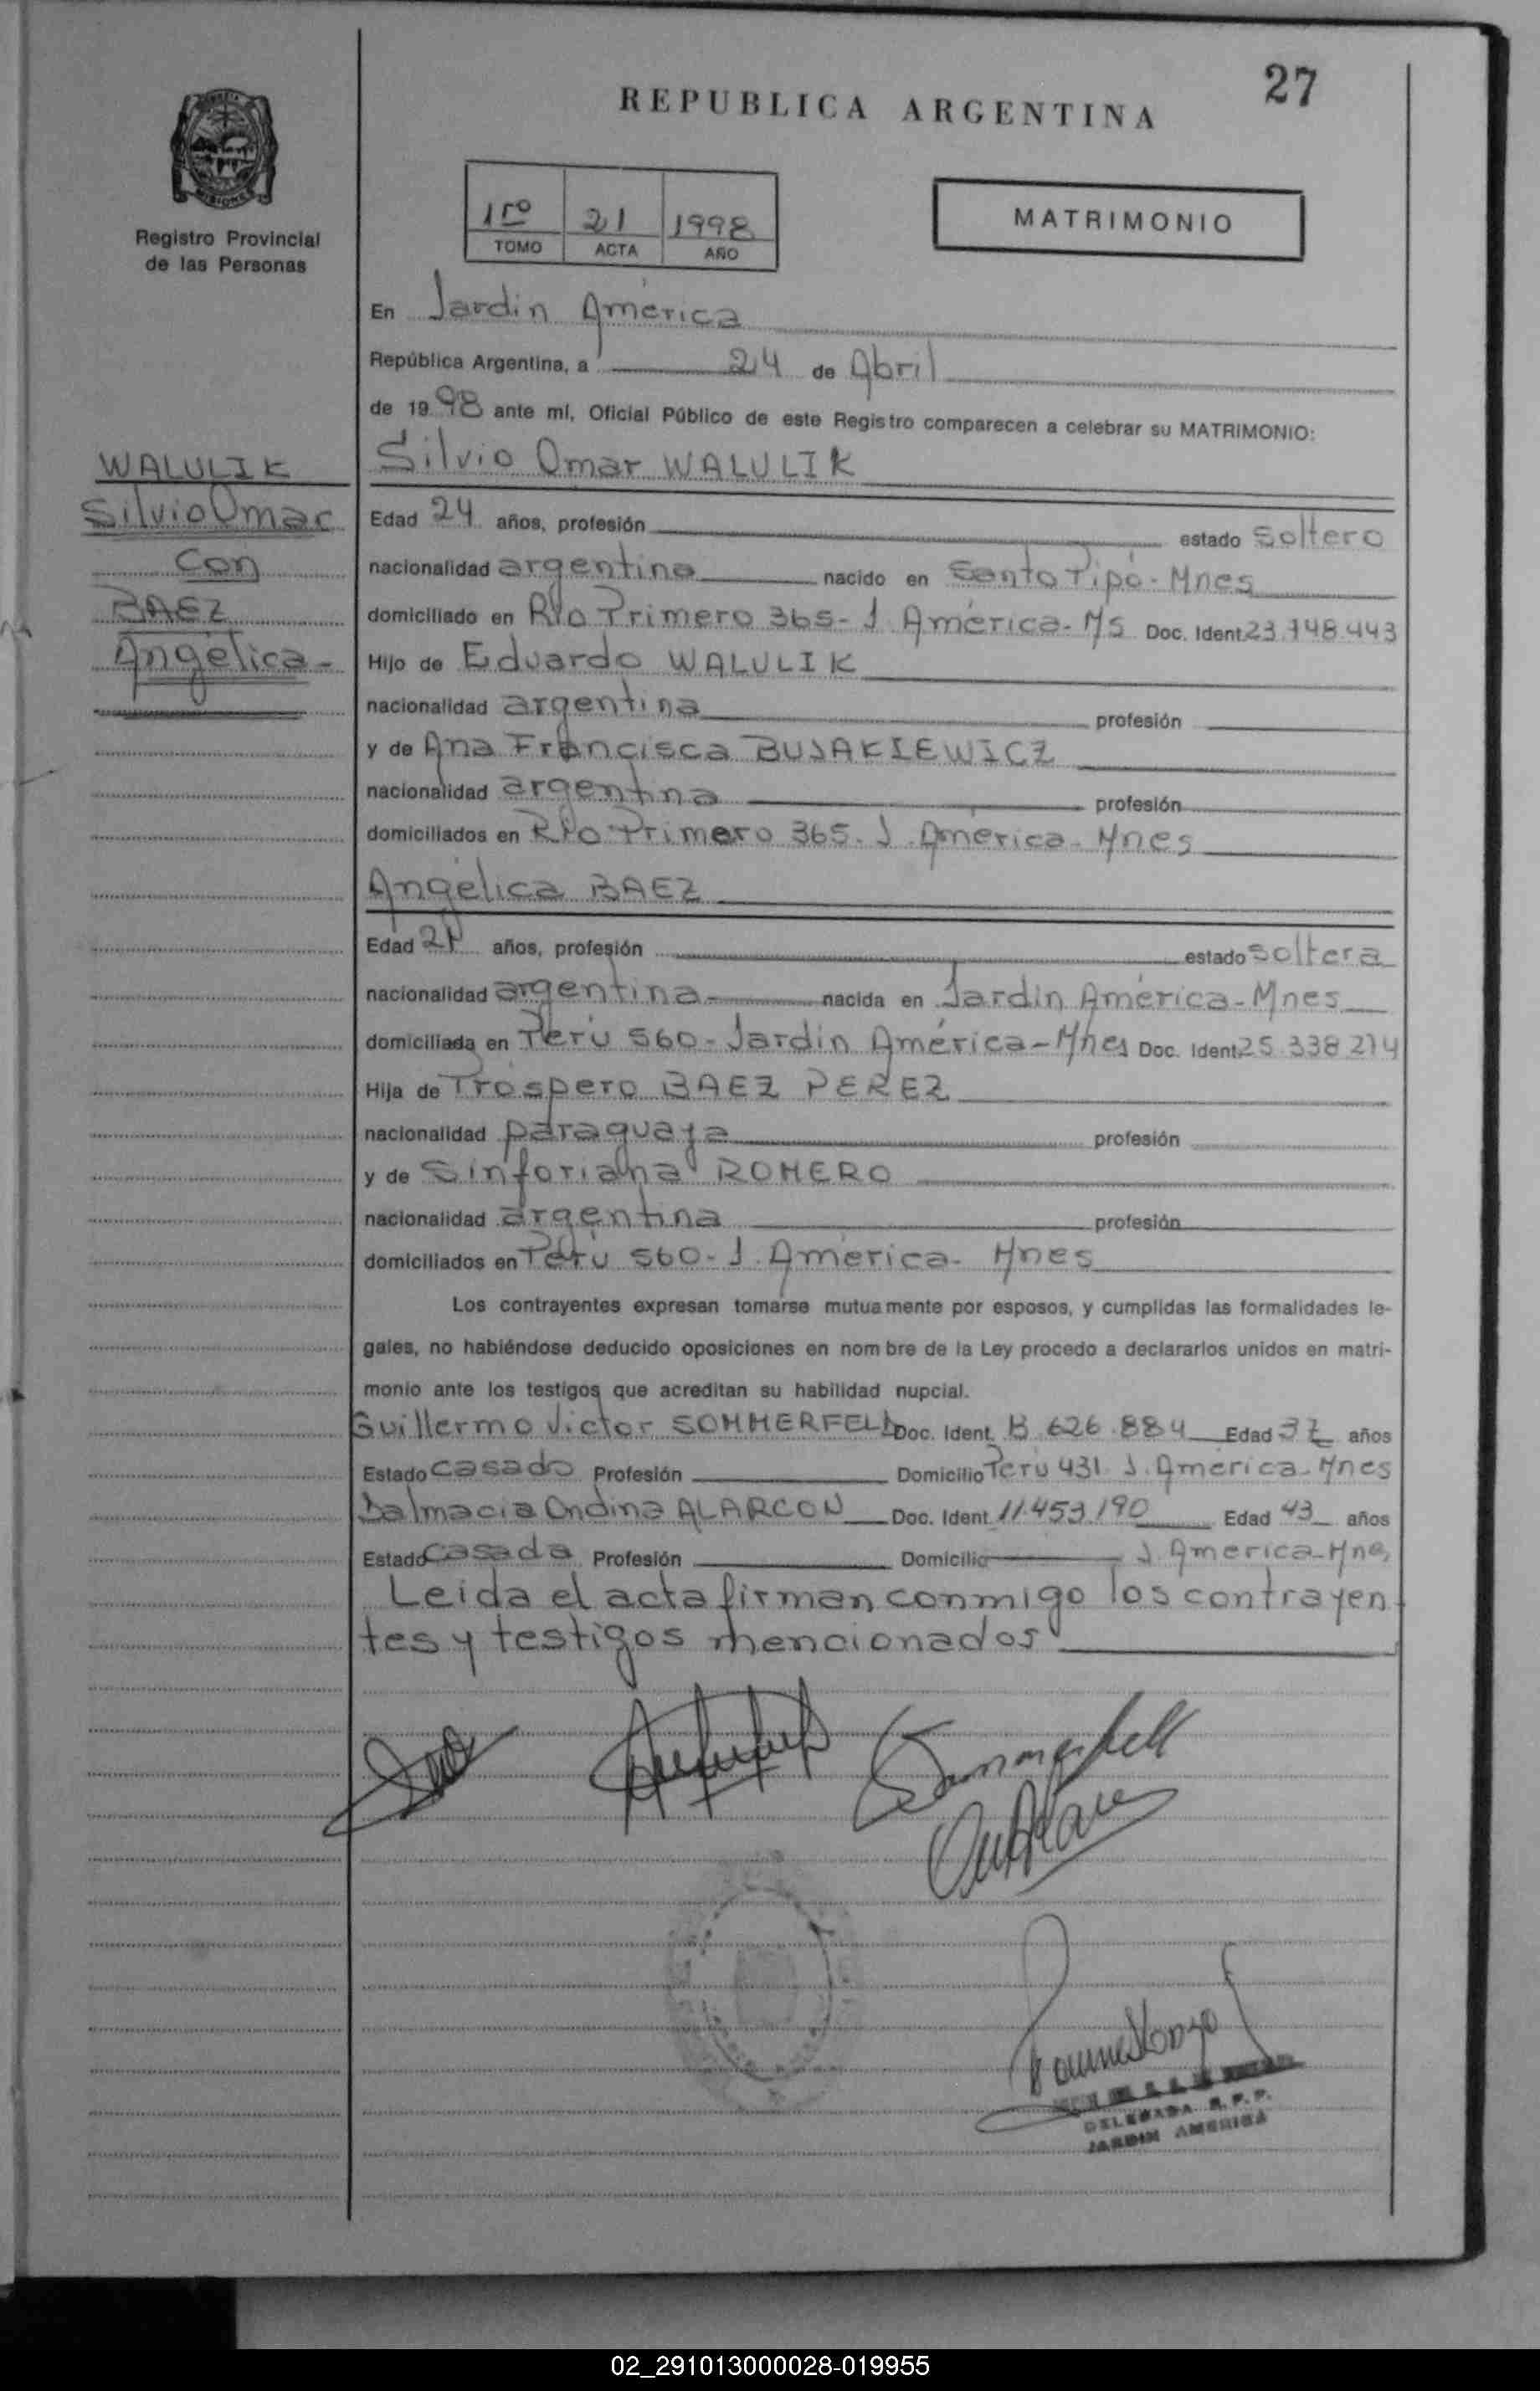 27
REPUBLICA ARGENTINA
MISIONES
Registro Provincial
de las Personas
1ro 21 1998
TOMO ACTA AÑO
MATRIMONIO
En Jardín América
República Argentina, a 24 de Abril
de 1998 ante mí, Oficial Público de este Registro comparecen a celebrar su MATRIMONIO:
WALULIK
Silvio Omar
con
BAEZ
Angélica-
Silvio Omar WALULIK
Edad 24 años, profesión estado soltero
nacionalidad argentina nacido en Santo Pipó-Mnes
domiciliado en Río Primero 365-J. América-Ms Doc. Ident. 23.748.443
Hijo de Eduardo WALULIK
nacionalidad argentina profesión
y de Ana Francisca BUJAKIEWICZ
nacionalidad argentina profesión
domiciliados en Río Primero 365. J. América-Mnes
Angélica BAEZ
Edad 21 años, profesión estado soltera
nacionalidad argentina- nacida en Jardín América-Mnes
domiciliada en Perú 560-Jardín América-Mnes Doc. Ident. 25.338.214
Hija de Próspero BAEZ PEREZ
nacionalidad paraguaya profesión
y de Sinforiana ROMERO
nacionalidad argentina profesión
domiciliados en Perú 560-J. América-Mnes
Los contrayentes expresan tomarse mutuamente por esposos, y cumplidas las formalidades le-
gales, no habiéndose deducido oposiciones en nombre de la Ley procedo a declararlos unidos en matri-
monio ante los testigos que acreditan su habilidad nupcial.
Guillermo Victor SOMMERFELD Doc. Ident. B.626.884 Edad 37 años
Estado casado Profesión Domicilio Perú 431 J. América-Mnes
Dalmacia Ondina ALARCON Doc. Ident. 11.453.190 Edad 43 años
Estado casada Profesión Domicilio J. América-Mnes
Leída el acta firman conmigo los contrayen
tes y testigos mencionados
Sommerfeld
DELEGADA R.P.P.
JARDIN AMERICA
02_291013000028-019955